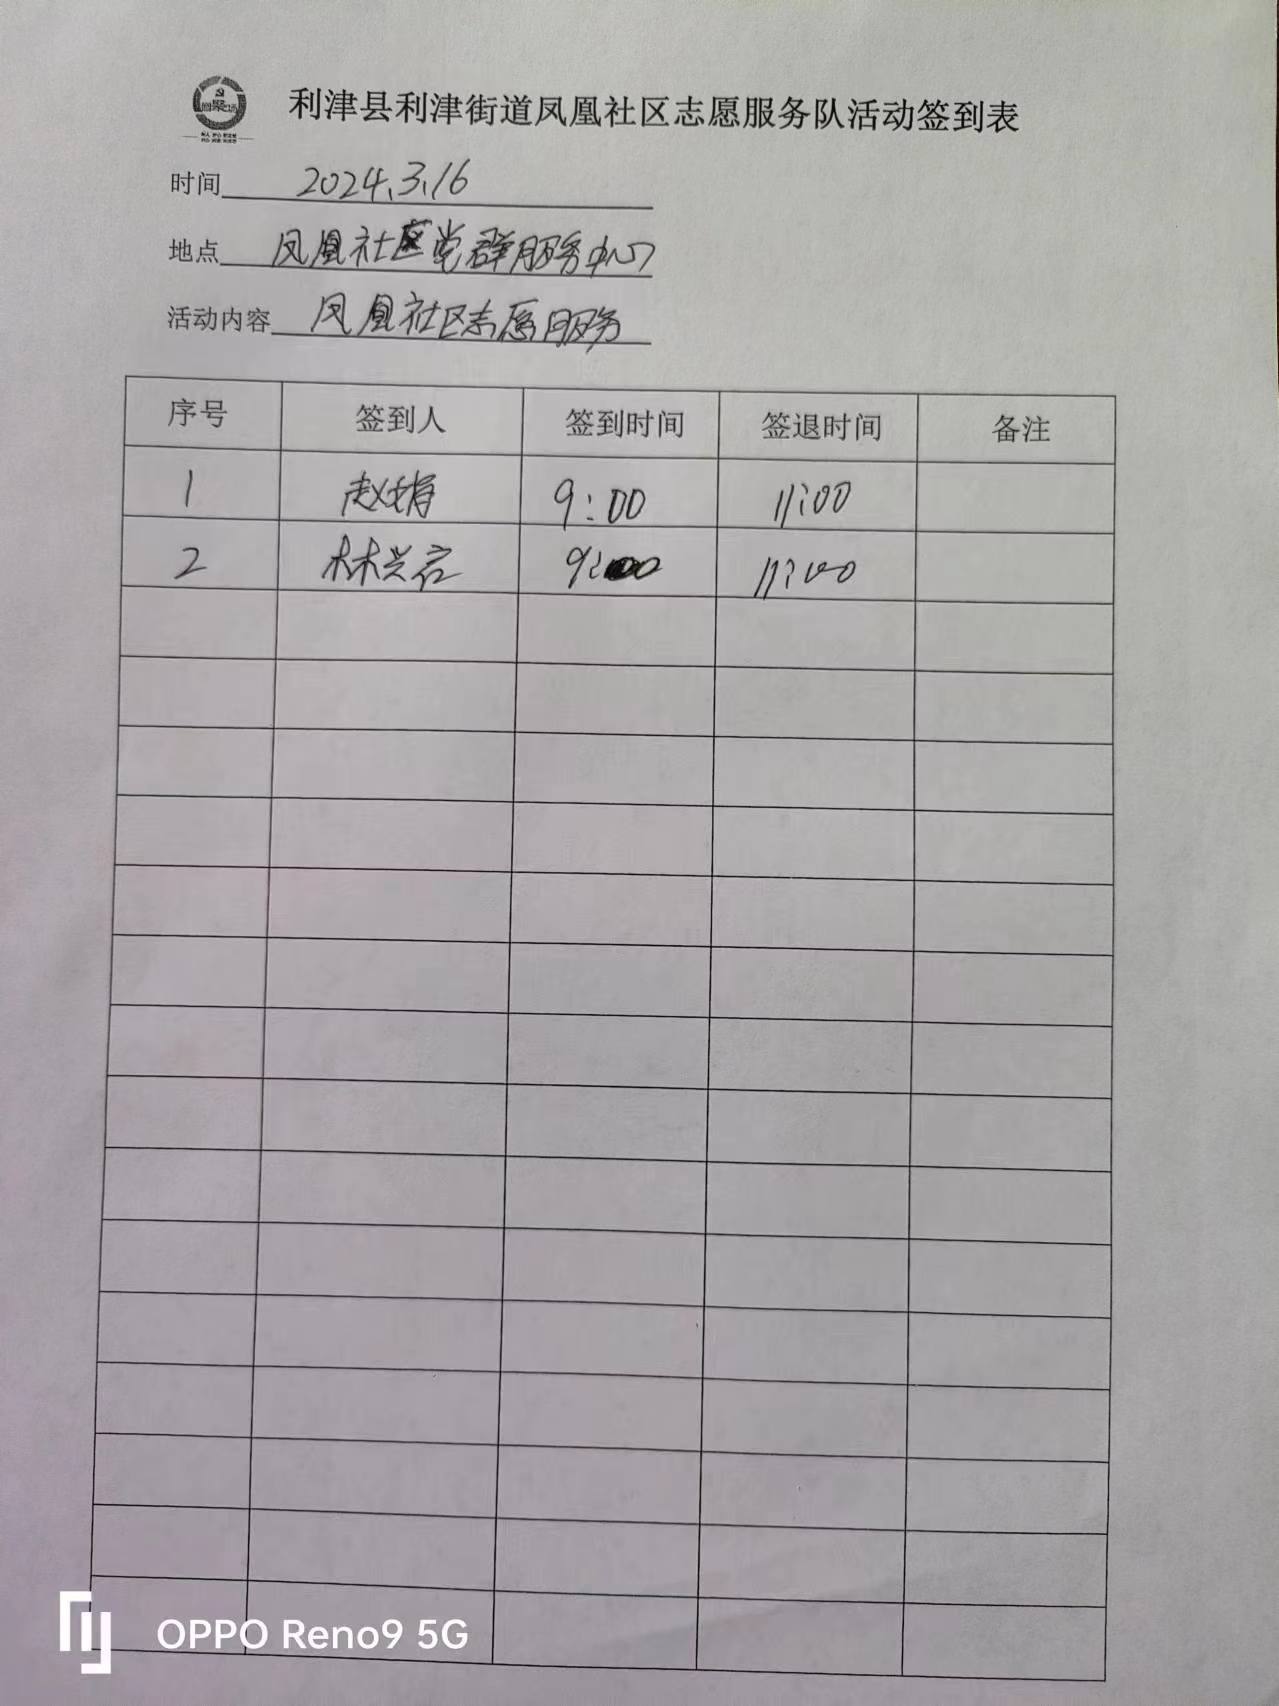 利津县利津街道凤凰社区志愿服务队活动签到表
时间 2024.3.16
地点 凤凰社区党群服务中心
活动内容 凤凰社区志愿服务
序号 签到人 签到时间 签退时间 备注
1 赵娟 9:00 11:00
2 林兴 9:00 11:00
OPPO Reno9 5G